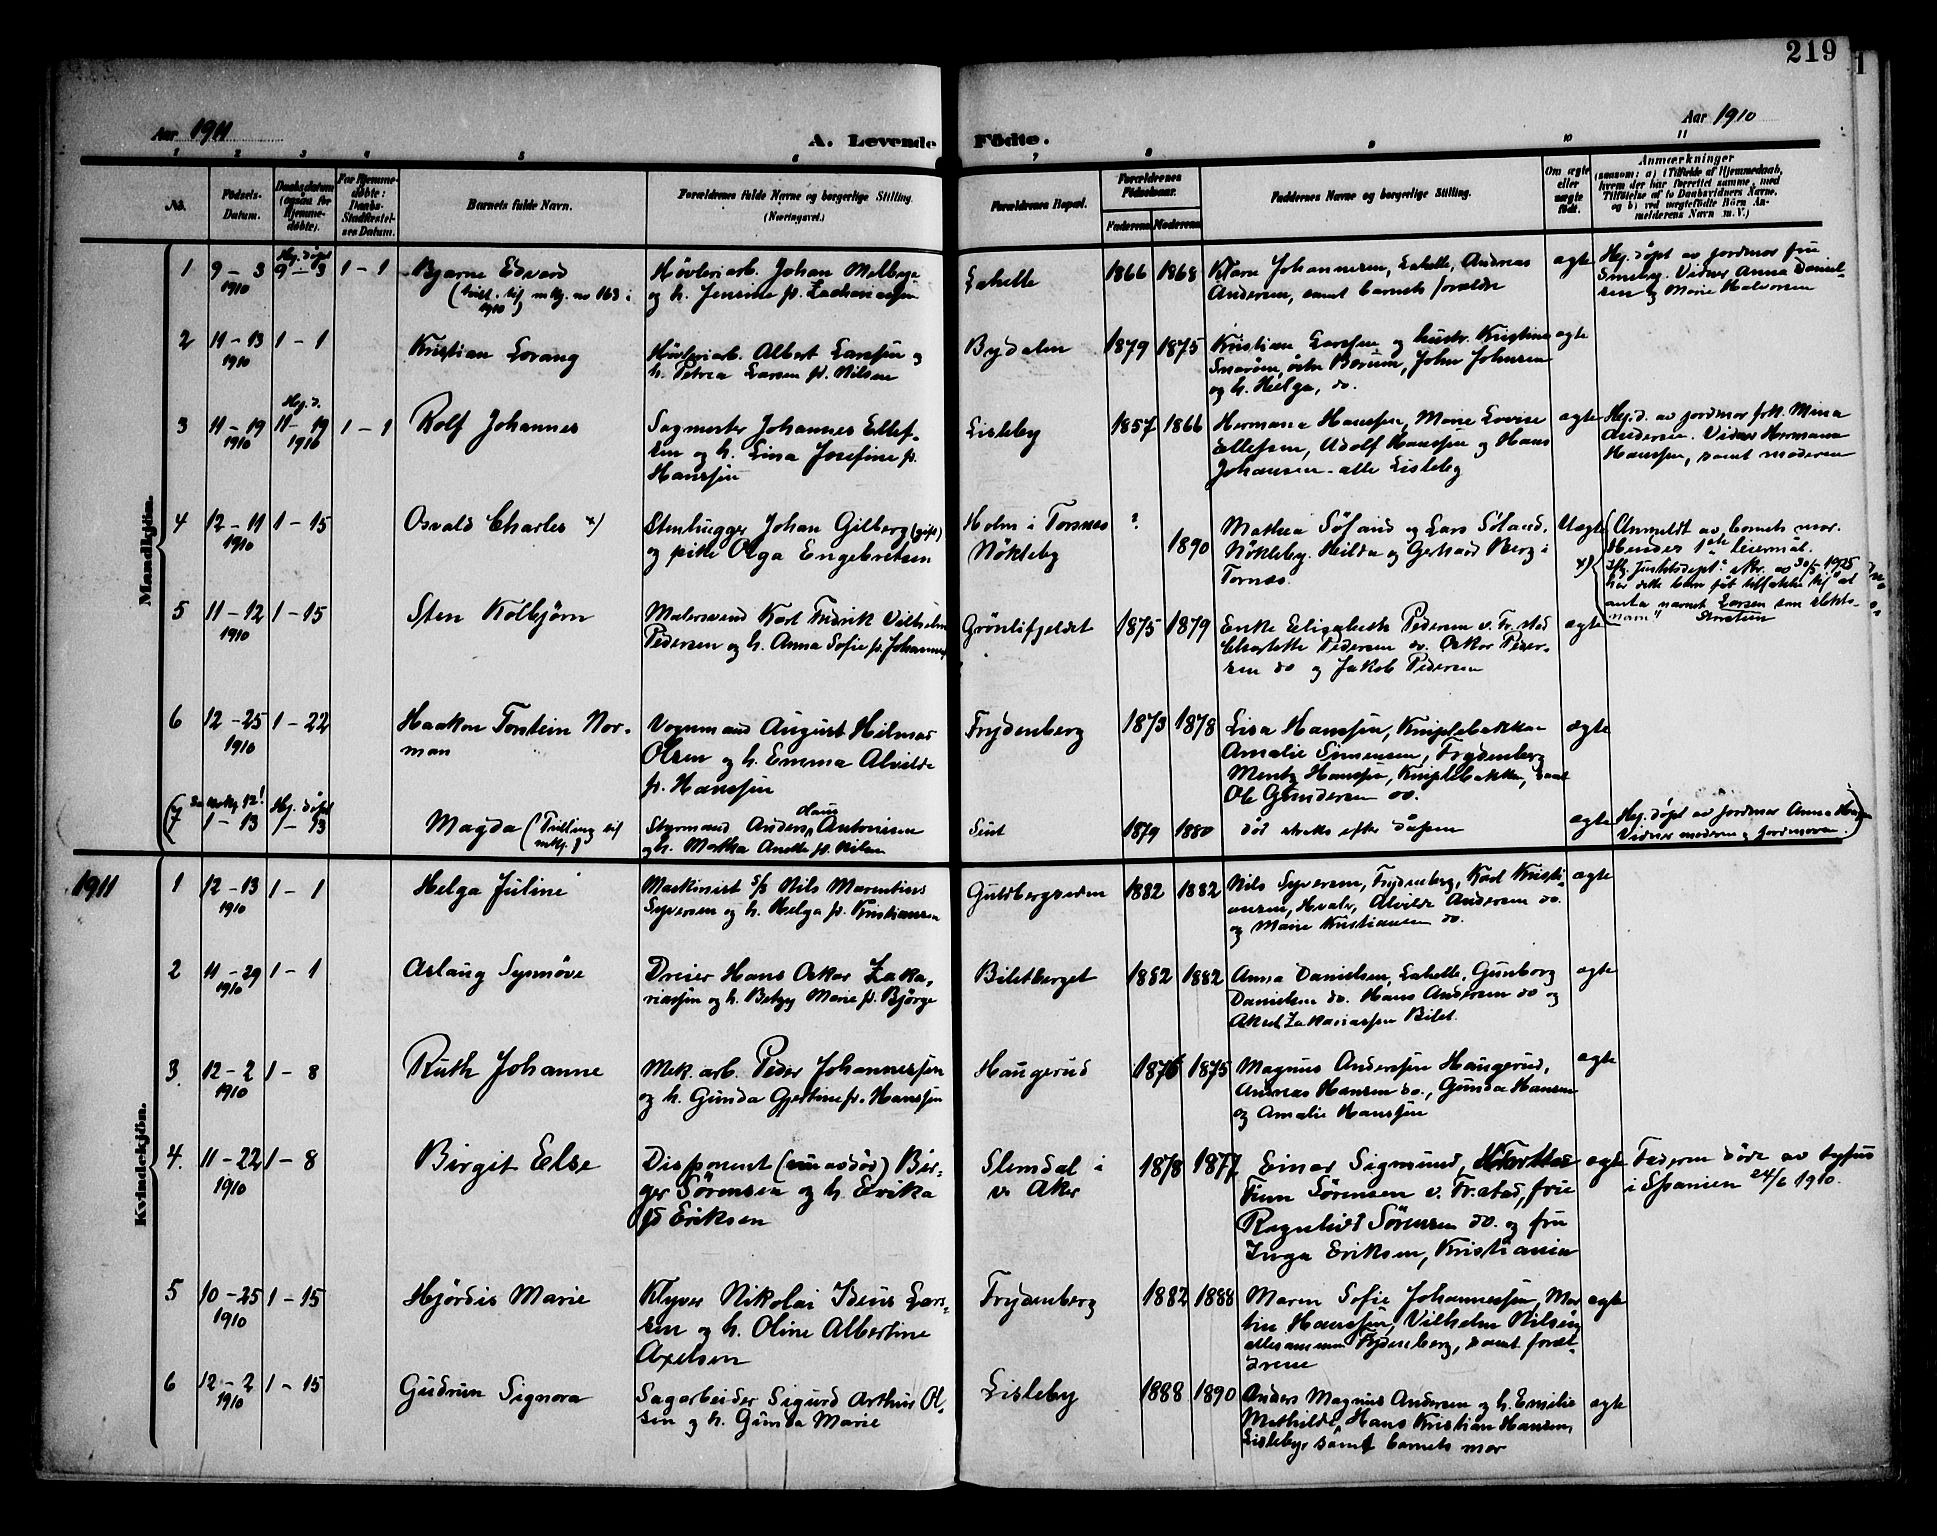 219
Aar 1911
A. Levende Födte.
Aar 1910
1 2 3 4 5 6 7 8 9 10 11
No.
Födsels-
Datum.
Daabsdatum
(ogsaa for
Hjemme-
döbte).
For Hjemme-
döbte:
Daabs-
Stadfæstel-
ses Datum.
Barnets fulde Navn.
Forældrenes fulde Navne og borgerlige Stilling.
(Næringsvei.)
Forældrenes Bopæl.
Forældrenes
Födselsaar.
Faderens Moderens
Faddernes Navne og borgerlige Stilling.
Om ægte
eller
uægte
födt.
Anmærkninger
(saasom: a) i Tilfælde af Hjemmedaab,
hvem der har forrettet samme, med
Tilföielse af to Daabsvidners Navne,
og b) ved uægtefödte Börn An-
melderens Navn m. V.)
Mandkjön.
1 9-3 1910 Hj. døpt 9-3 1-1 Bjarne Edvard
(tvil. til mkj. no 163 i
1910)
Høvleriarb. Johan Melbye
og h. Jensine f. Zachariassen
Lahelle 1866 1868
Klara Johannesen, Lahelle, Andreas
Andersen, samt barnets forældre
ægte
Hj. døpt av jordmor fru
Smeby. Vidner Anna Daniel-
sen og Marie Halvorsen
2 11-13 1910 1-1 Kristian Lorang
Høvleriarb. Albert Larssen og
h. Petrea Larsen f. Nilsen
Bydalen 1879 1875
Kristian Larssen og hustr. Kristine
Snarøen, östre Bærum, John Johnsen
og h. Helga, do.
ægte
3 11-19 1910 Hj. d. 11-19 1910 1-1 Rolf Johannes
Sagmester Johannes Ellef-
sen og h. Lina Josefine f.
Hanssen
Lisleby 1857 1866
Hermana Hanssen, Marie Lovise
Ellefsen, Adolf Hanssen og Hans
Johansen - alle Lisleby
ægte
Hj. d. av jordmor frk. Mina
Andersen. Vidner Hermana
Hanssen, samt moderen
4 12-11 1910 1-15 Osvald Charles x)
Stenhugger Johan Gilberg (gift)
og pike Olga Engebretsen
Holm i Torsnes
Nökleby
? 1890
Mathea Söland og Lars Söland,
Nökleby. Hilda og Gerhard Berg i
Torsnæs.
Uægte
Anmeldt av barnets mor.
Hendes 1ste leiermål.
x) Ifg. Justitsdept. skr. av 30/5 1925
har dette barn fåt tilladelse til "at
anta navnet Larsen som slekts-
navn"
5 11-12 1910 1-15 Sten Kolbjörn
Malersvend Karl Fredrik Vilhelm
Pedersen og h. Anna Sofie f. Johannes
Grönlifjeldet 1875 1879
Enke Elisabeth Pedersen v. Fr.stad
Charlotte Pedersen do. Oskar Peder-
sen do og Jakob Pedersen
ægte
6 12-25 1910 1-22 Haakon Torstein Nor-
man
Vognmand August Hilmar
Olsen og h. Emma Alvilde
f. Hanssen
Frydenberg 1873 1878
Lisa Hanssen, Kniplebakken
Amalie Simensen, Frydenberg
Mentz Hanssen, Kniplebakken, samt
Ole Gundersen do.
ægte
(7 Se mkj. 12! 1-13 Hj. døpt 1-13 Magda (Tvilling til
mkj.
Styrmand Anders Claus Antonisen
og h. Martha Anette f. Nilsen
Sent 1879 1880 död straks efter dåpen
ægte
Hj. døpt av jordmor Anna
Vidner moderen og jordmoren.)
1911
Kvindekjön.
1 12-13 1910 1-1 Helga Juline
Maskinist s/s Nils Marentius
Syversen og h. Helga f. Kristiansen
Guldbergseden 1882 1882
Nils Syversen, Frydenberg, Karl Kristi-
ansen, Hvaler, Alvilde Andersen do.
og Marie Kristiansen do.
ægte
2 11-29 1910 1-1 Aslaug Synnöve
Dreier Hans Oskar Zaka-
riassen og h. Betzy Marie f. Björge
Biletberget 1882 1882
Anna Danielsen, Lahelle, Gunborg
Danielsen do. Hans Andersen do og
Aksel Zakariassen Bilet.
ægte
3. 12-2 1910 1-8 Ruth Johanne
Mek. arb. Peder Johannessen
og h. Gunda Gjertine f. Hanssen
Haugerud 1876 1875
Magnus Anderssen Haugerud,
Andreas Hansen do., Gunda Hansen
og Amalie Hanssen
ægte
4. 11-22 1910 1-8 Birgit Else
Disponent (nu avdöd) Bir-
ger Sörensen og h. Erika
fd Eriksen
Slemdal i
v. Aker
1878 1877
Einar Sigmund,
Finn Sörensen v. Fr.stad, frue
Ragnhild Sörensen do. og fru
Inga Eriksen, Kristiania
ægte
Faderen döde av tyfus
i Spanien 24/6 1910.
5 10-25 1910 1-15 Hjördis Marie
Klyver Nikolai Ideus Lars-
sen og h. Oline Albertine
Axelsen
Frydenberg 1882 1888
Maren Sofie Johannessen, Mar
tin Hanssen, Vilhelm Nilsen,
allesammen Frydenberg, samt foræl-
drene
ægte
6 12-2 1910 1-15 Gudrun Signora
Sagarbeider Sigurd Arthur Ol-
sen og h. Gunda Marie
Lisleby 1888 1890
Anders Magnus Andersen og h. Emilie
Mathilde, Hans Kristian Hansen,
Lisleby, samt barnets mor
ægte